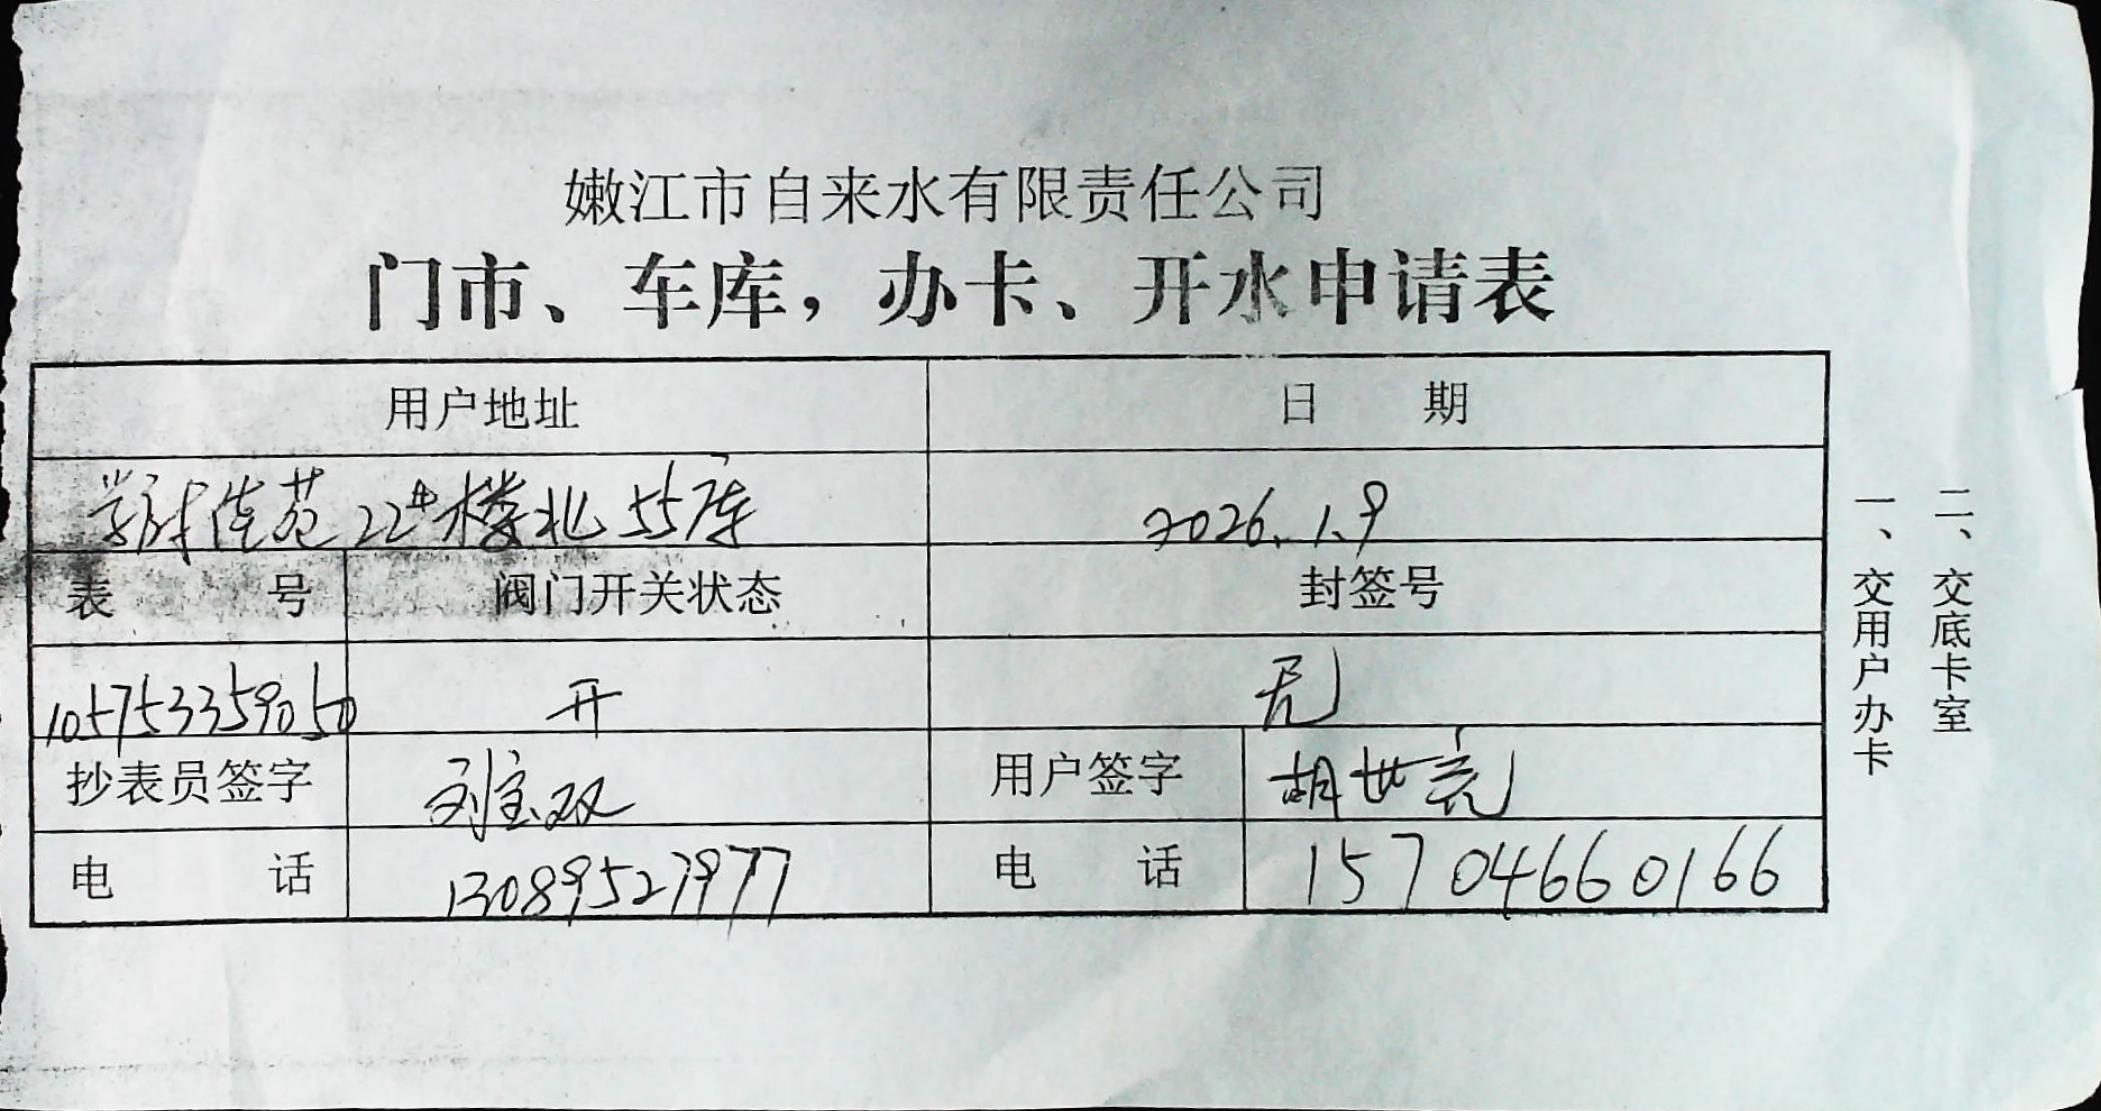 嫩江市自来水有限责任公司
门市、车库，办卡、开水申请表
用户地址 日 期
学府佳苑22#楼北55库 2026.1.9
表 号 阀门开关状态 封签号
105753359050 开 无
抄表员签字 刘宝双 用户签字 胡世亮
电 话 13089527977 电 话 15704660166
一、交用户办卡
二、交底卡室